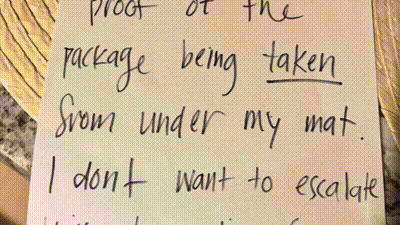 proof of the
package being taken
from under my mat.
I dont want to escalate